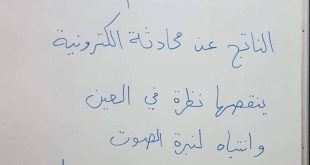 الناتج عن محادثة الكترونية
ينقصها نظرة في العين
وانتباه لنبرة الصوت